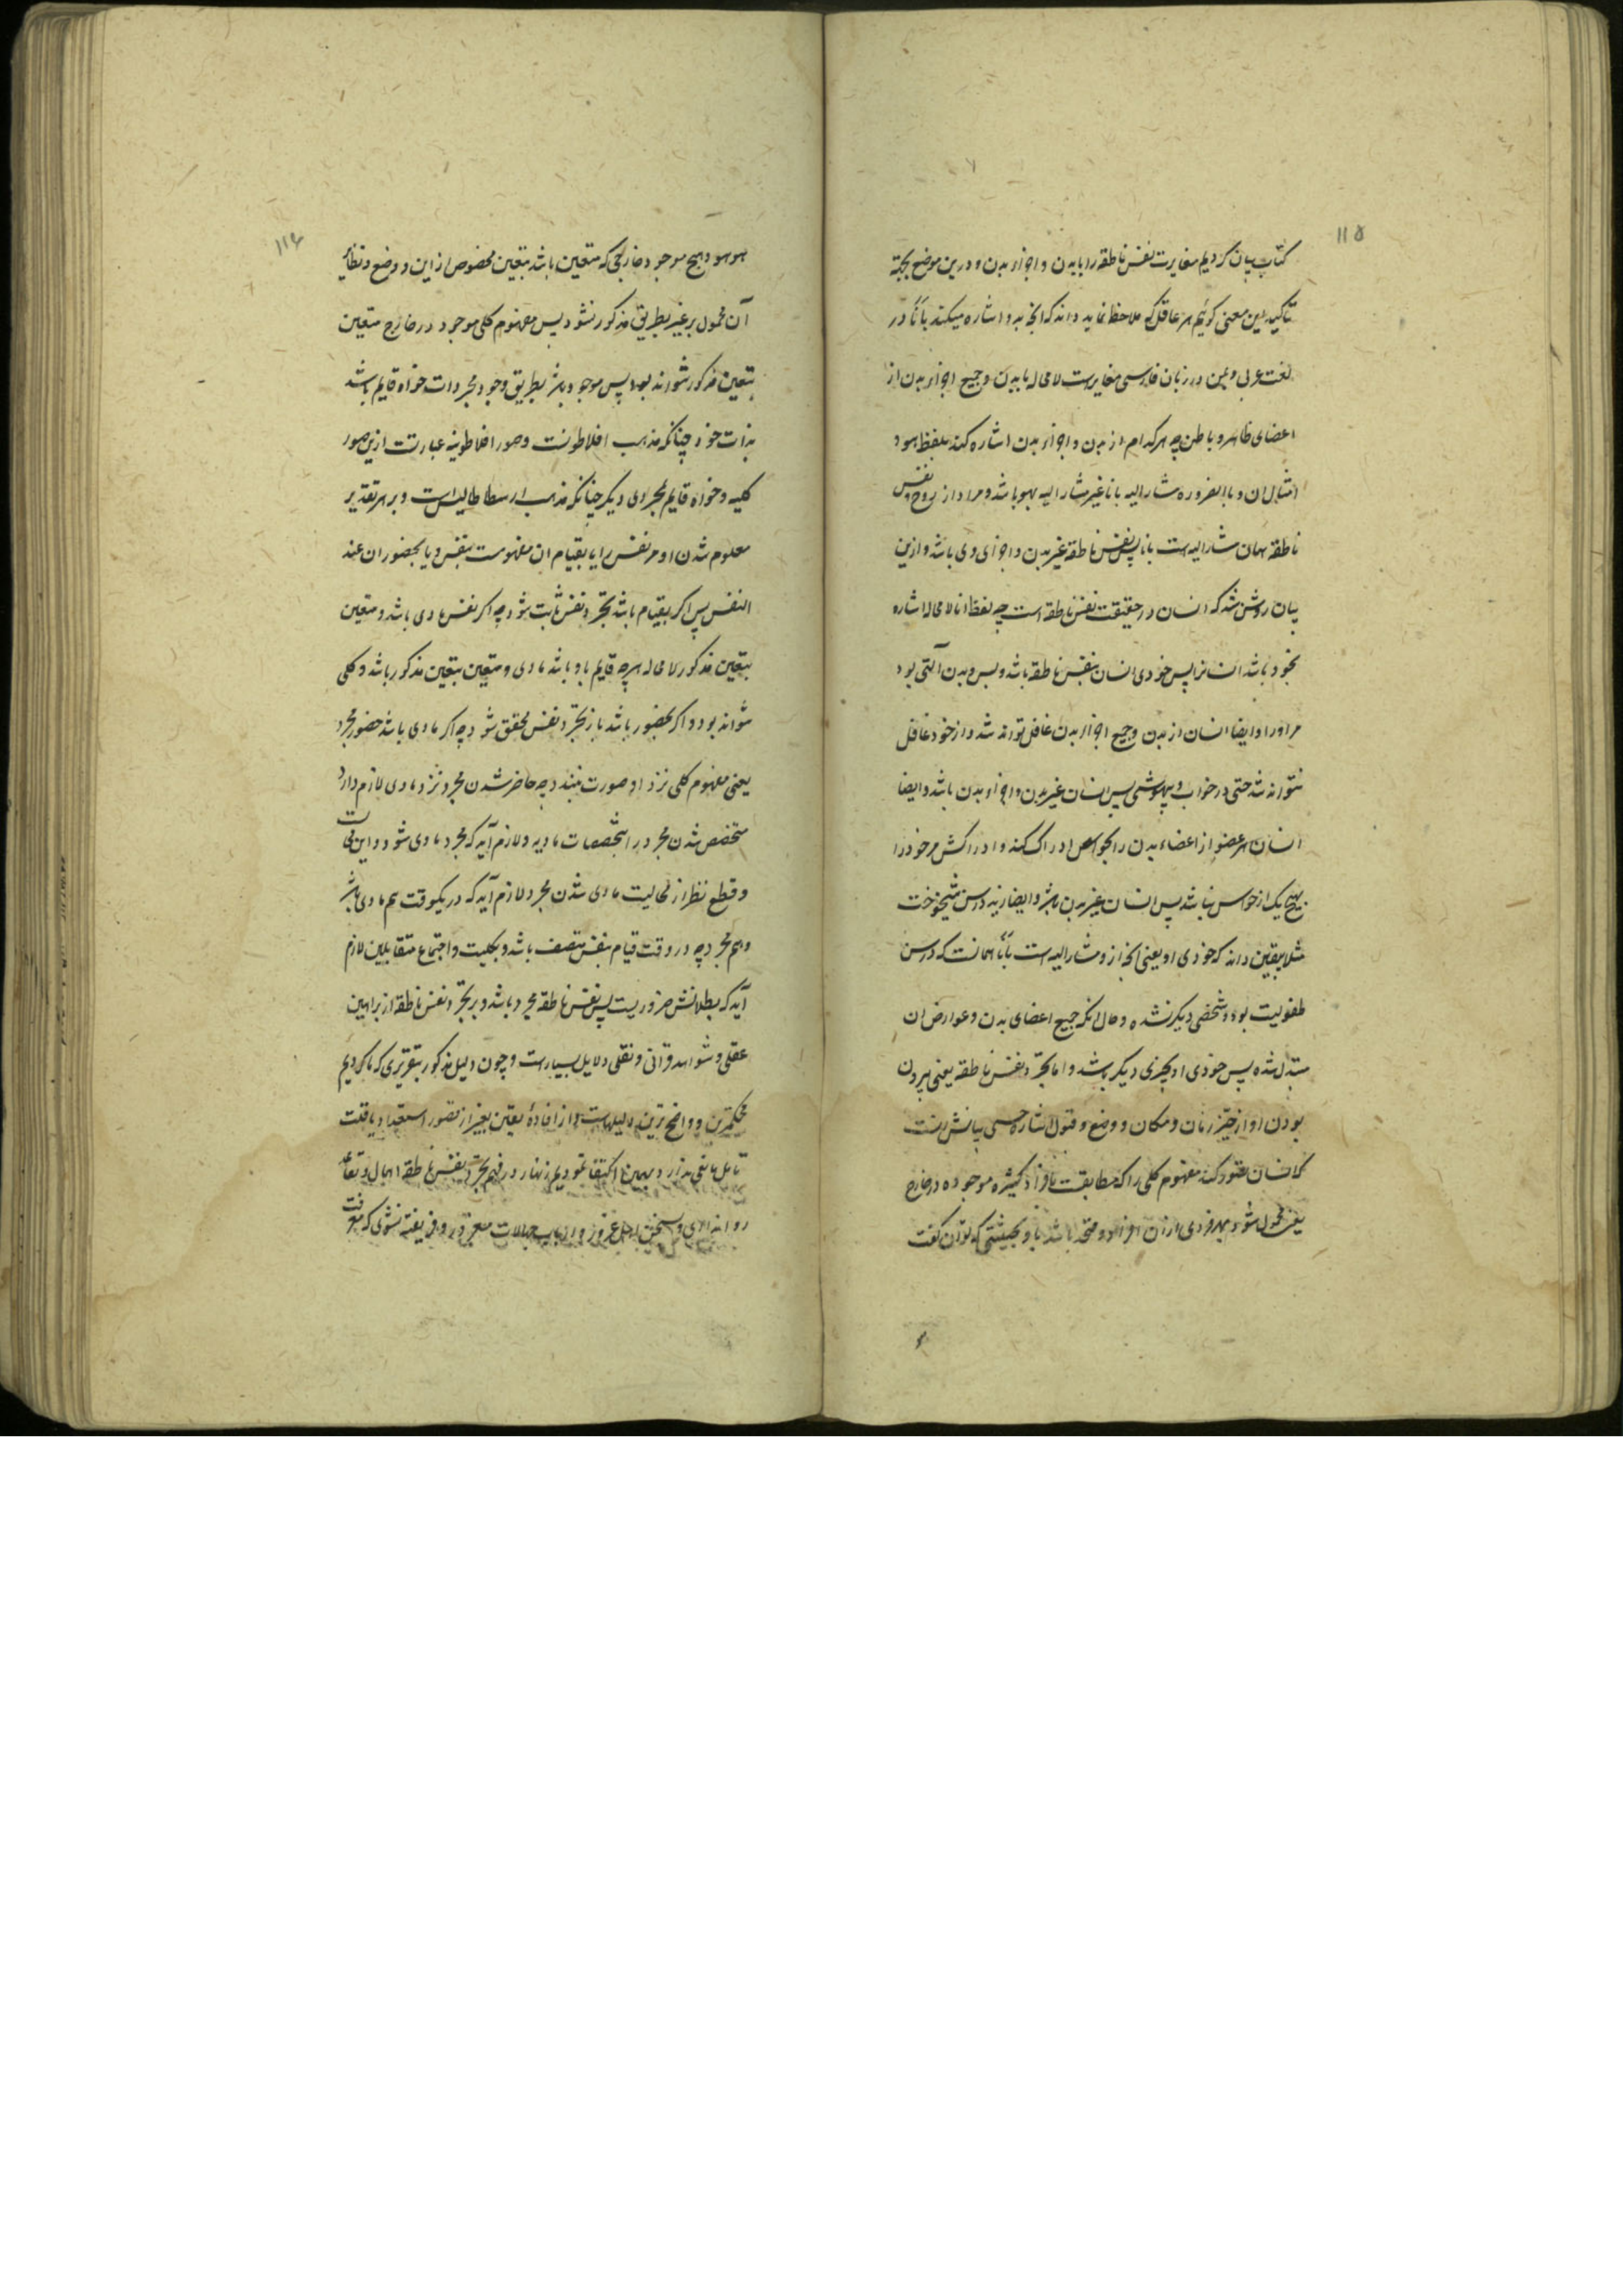 ۱۱۵
کتاب بیان کردیم مغایرت نفس ناطقه را با بدن و اجزاء بدن و درین موضع بجهة
تاکید این معنی کوئیم هر عاقل که ملاحظه نماید داند که آنچه بدو اشاره میکند بانا در
لغت عربی و بمن در زبان فارسی مغایرست لامحاله با بدن و جمیع اجزاء بدن از
اعضای ظاهر و باطن چه هر کدام از بدن و اجزاء بدن اشاره کند بلفظ هو و
امثال ان و بالضروره مشار الیه بانا غیر مشار الیه بهو باشد و مراد از روح و نفس
ناطقه همان مشار الیه است بانا پس نفس ناطقه غیر بدن و اجزای وی باشد و ازین
بیان روشن شد که انسان در حقیقت نفس ناطقه است چه لفظ انا لامحاله اشاره
بخود باشد انسانرا پس خودی انسان بنفس ناطقه باشد و بس و بدن آلتی بود
مر او را و ایضا انسان از بدن و جمیع اجزاء بدن غافل تواند شد و از خود غافل
نتواند شد حتی در خواب و بیهوشی پس انسان غیر بدن و اجزاء بدن باشد و ایضا
انسان هر عضو از اعضاء بدن را بحواس ادراک کند و ادراکش مر خود را
بهیچ یک از حواس نباشد پس انسان غیر بدن باشد و ایضا زید در سن شیخوخت
مثلا بیقین داند که خودی او یعنی آنچه از و مشار الیه است بانا همانست که در سن
طفولیت بود و شخصی دیگر نشده و حال آنکه جمیع اعضای بدن و عوارض ان
متبدل شده پس خودی او بچیزی دیگر باشد و اما تجرد نفس ناطقه یعنی بیرون
بودن او از حیز زمان و مکان و وضع و قبول اشاره حسی بیانش انست
که انسان تصور کند مفهوم کلی را که مطابقت با افراد کثیره موجوده در خارج
یعنی محمول شود بهر فردی از ان افراد و متحد باشد با و بحیثیتی که توان گفت
۱۱۶
هو هو و هیچ موجود خارجی که متعین باشد بتعین مخصوص از این و وضع و نظائر
آن محمول بر غیر بطریق مذکور نشود پس مفهوم کلی موجود در خارج متعین
بتعین مذکور نتواند بود پس موجود باشد بطریق وجود مجردات خواه قایم باشد
بذات خود چنانکه مذهب افلاطونست و صور افلاطونیه عبارتست ازین صور
کلیه و خواه قایم بمجرد دیگر چنانکه مذهب ارسطاطالیس است و بر هر تقدیر
معلوم شدن او مر نفس را یا بقیام ان مفهومست بنفس و یا بحضور ان عند
النفس پس اگر بقیام باشد تجرد نفس ثابت شود چه اگر نفس مادی باشد و متعین
بتعین مذکور لامحاله هر چه قایم باو باشد مادی و متعین بتعین مذکور باشد و کلی
نتواند بود و اگر بحضور باشد باز تجرد نفس محقق شود چه اگر مادی باشد حضور مجرد
یعنی مفهوم کلی نزد او صورت نبندد چه حاضر شدن مجرد نزد مادی لازم دارد
متخصص شدن مجرد را بتخصصات مادیه و لازم آید که مجرد مادی شود و این محالست
و قطع نظر از محالیت مادی شدن مجرد لازم آید که در یکوقت هم مادی باشد
و هم مجرد چه در وقت قیام بنفس متصف باشد و بکلیت و اجتماع متقابلین لازم
آید که بطلانش ضروریست پس نفس ناطقه مجرد باشد و بر تجرد نفس ناطقه از براهین
عقلی و شواهد قرانی و نقلی دلایل بسیارست و چون دلیل مذکور بتقریری که ما کردیم
محکمترین و واضح ترین دلیلهاست و از افادهٔ یقین بغیر از تصور استعداد یا قلت
تامل مانعی ندارد بهمین اکتفا نمودیم زنهار در فهم تجرد نفس ناطقه اهمال و تقاعد
روا نداری و بسخن اهل غرور و ارباب جهالات مغرور و فریفته نشوی که معرفت